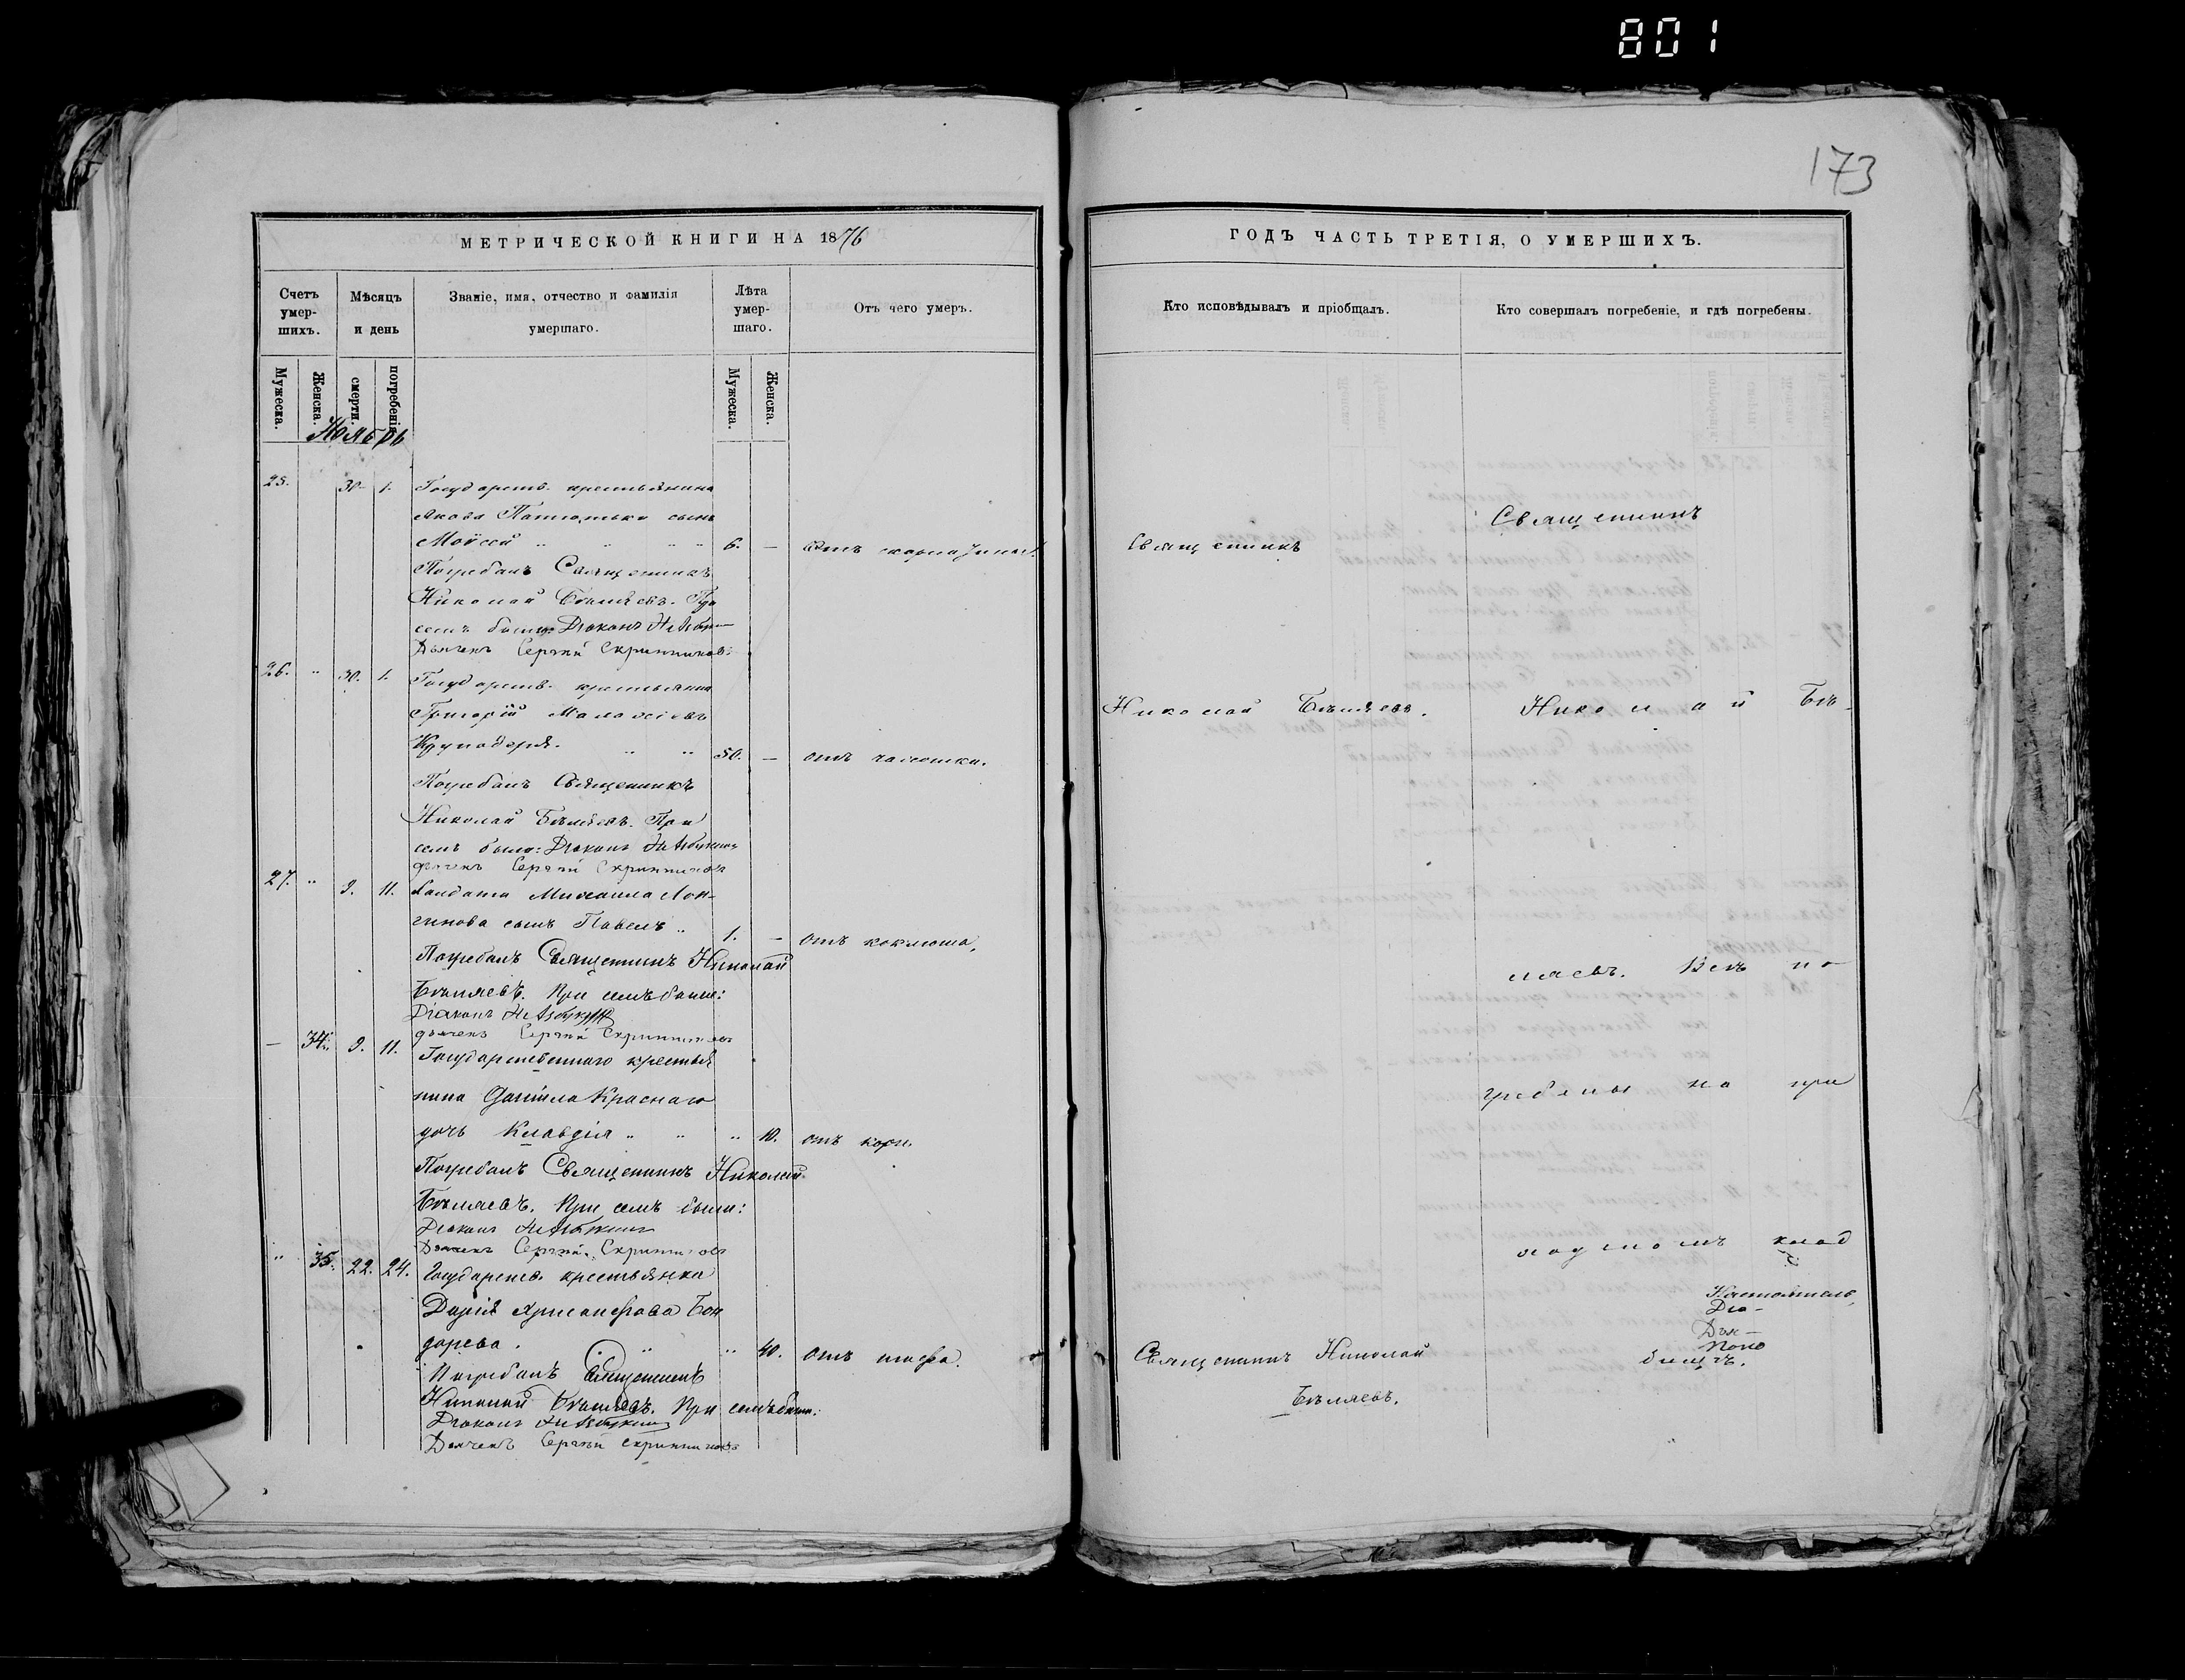 801
173
МЕТРИЧЕСКОЙ КНИГИ НА 1876
Счетъ умер-шихъ.
Мѣсяцъ и день
Званіе, имя, отчество и фамилія умершаго.
Лѣта умер-шаго.
Отъ чего умеръ.
Мужеска.
Женска.
смерти.
погребенія
Мужеска.
Женска.
Ноябрь
25. 30. 1. Государств. крестьянина
Якова сынъ
Моисей 6. — Отъ
Погребалъ Священникъ
Николай Бѣляевъ. При
семъ были: Діаконъ
Дьячекъ Сергѣй Скрипниковъ
26. " 30. 1. Государств. крестьянинъ
Григорій
50. — отъ чахотки.
Погребалъ Священникъ
Николай Бѣляевъ. При
семъ были: Діаконъ
дьячекъ Сергѣй Скрипниковъ
27. " 9. 11. Солдата Михаила Лон-
гинова сынъ Павелъ " 1. — отъ коклюша.
Погребалъ Священникъ Николай
Бѣляевъ. При семъ были:
Діаконъ
дьячекъ Сергѣй Скрипниковъ
— 34. 9. 11. Государственнаго крестья
нина Даніила Краснаго
дочь Клавдія " " " 10. отъ кори.
Погребалъ Священникъ Николай
Бѣляевъ. При семъ были:
Діаконъ
Дьячекъ Сергѣй Скрипниковъ
" 35. 22. 24. Государств. крестьянка
Дарія Бон
дарева. " " 40. Отъ тифа.
Погребалъ Священникъ
Николай Бѣляевъ. При семъ были:
Діаконъ
Дьячекъ Сергѣй Скрипниковъ
ГОДЪ ЧАСТЬ ТРЕТІЯ, О УМЕРШИХЪ.
Кто исповѣдывалъ и пріобщалъ.
Кто совершалъ погребеніе, и гдѣ погребены.
Священникъ
Николай Бѣляевъ.
Священникъ Николай
Бѣляевъ.
Священникъ
Николай Бѣ-
ляевъ. Всѣ по
гребены на при
ходскомъ клад
Настоятель,
Діа-
Дья-
Поно
бищѣ.